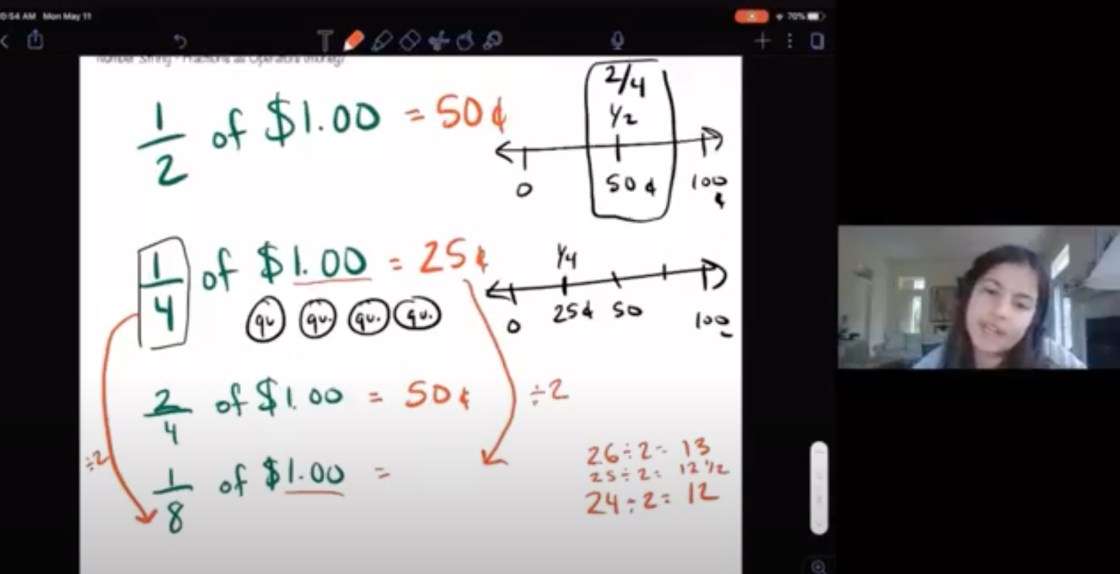 0:54 AM Mon May 11
70%
Number String - Fractions as Operators (money)
1/2 of $1.00 = 50¢
2/4
1/2
0 50¢ 100¢
1/4 of $1.00 = 25¢
qu. qu. qu. qu.
1/4
0 25¢ 50 100
2/4 of $1.00 = 50¢
÷2
÷2
1/8 of $1.00 =
26÷2= 13
25÷2= 12 1/2
24÷2= 12